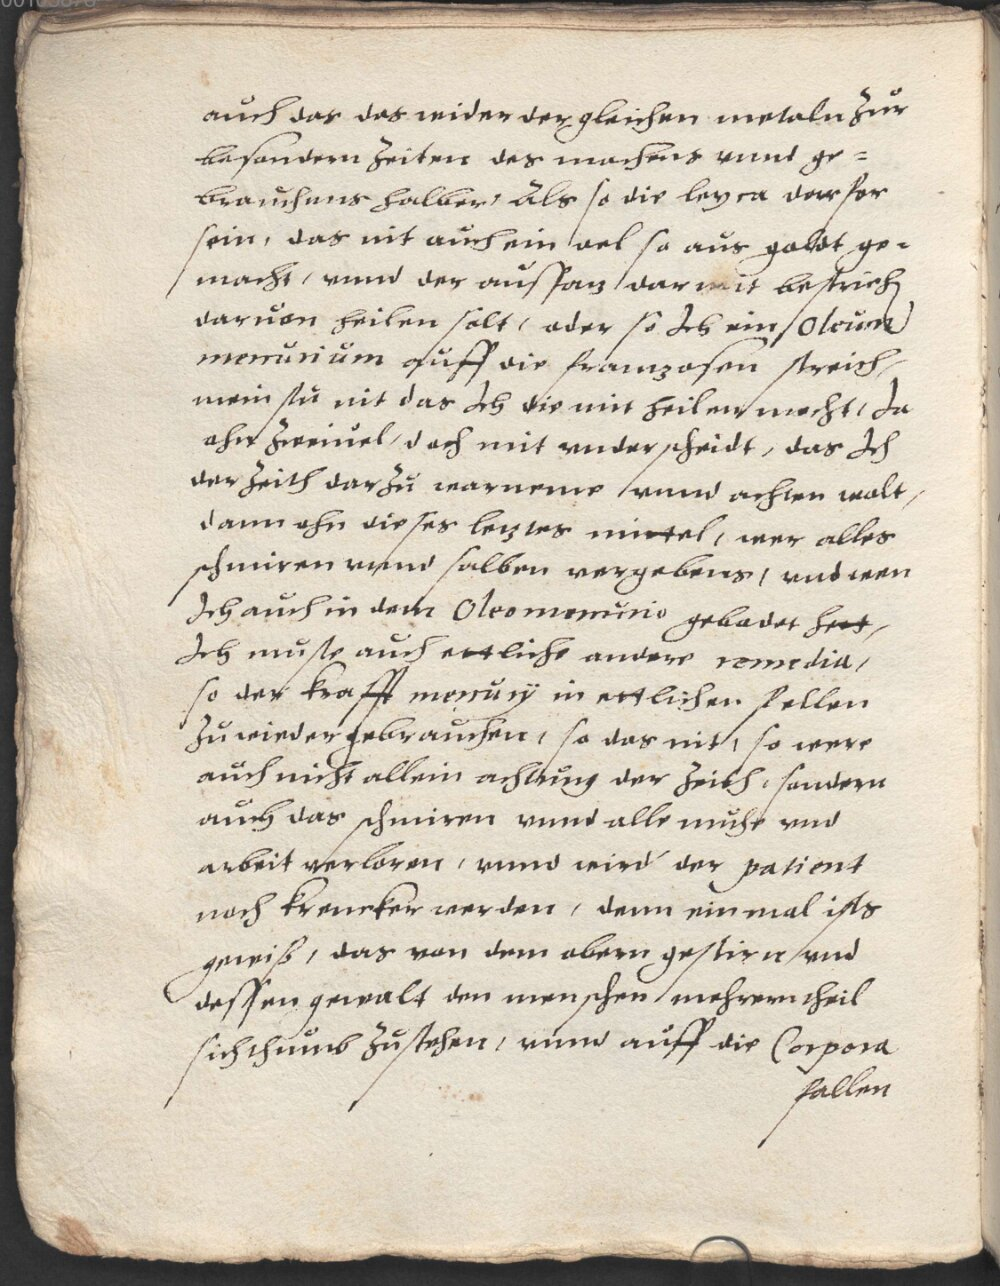 auch das das wider dergleichen metaln Zur
besondern Zeiten des machens vnnd ge=
brauchens halber, Als so die lepra
sein, das nit auch ein oel so aus goldt ge=
macht, vnnd der aussatz darmit bestrich
daruon heilen solt, oder so Ich ein Oleum
mercurium auff die franzosen streich,
meinstu nit das Ich die nit heilen mecht, Ja
ohn Zweiuel, doch mit vnderscheidt, das Ich
der Zeith darZu warneme vnnd achten wolt,
dann ohn dieses letztes mittel, wer alles
schmiren vnnd salben vergebens, vnd wen
Ich auch in dem Oleo mercurio gebadet hett,
Ich muste auch ettliche andere remedia,
so der krafft mercurÿ in ettlichen fellen
Zu wieder gebrauchen, so das nit, so were
auch nicht allein achtung der Zeith, sondern
auch das schmiren vnnd alle muhe vnd
arbeit verloren, vnnd wird der patient
noch krencker werden, denn einmal ists
gewiß, das von dem obern gestirn vnd
dessen gewalt den menschen mehrerntheil
sichthumb Zustehen, vnnd auff die Corpora
fallen